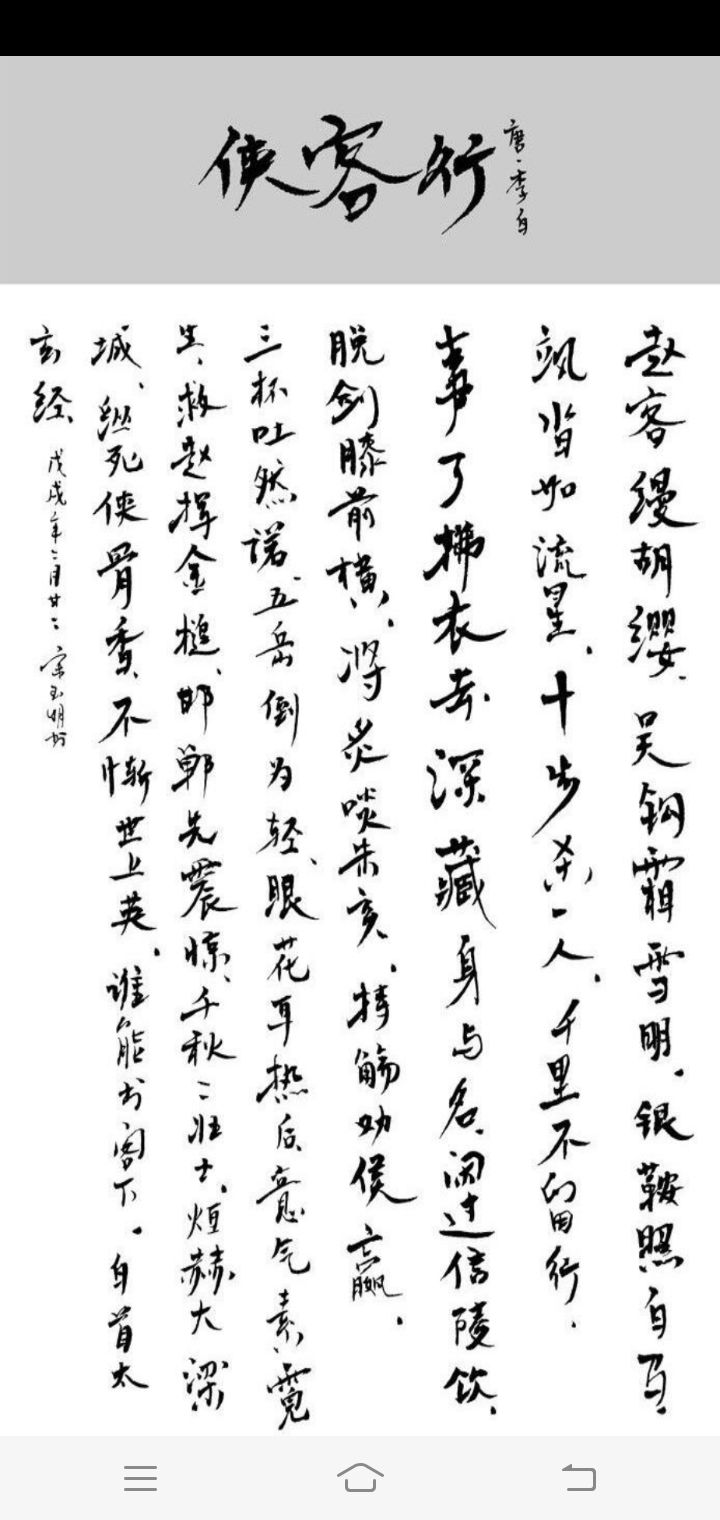 侠客行
唐·李白
赵客缦胡缨、吴钩霜雪明。银鞍照白马。
飒沓如流星、十步杀一人、千里不留行。
事了拂衣去深藏身与名、闲过信陵饮、
脱剑膝前横、将炙啖朱亥、持觞劝侯嬴。
三杯吐然诺、五岳倒为轻、眼花耳热后意气素霓
生、救赵挥金槌、邯郸先震惊、千秋二壮士、烜赫大梁
城、纵死侠骨香、不惭世上英。谁能书阁下。白首太
玄经
戊戌年二月廿二宋玉明书